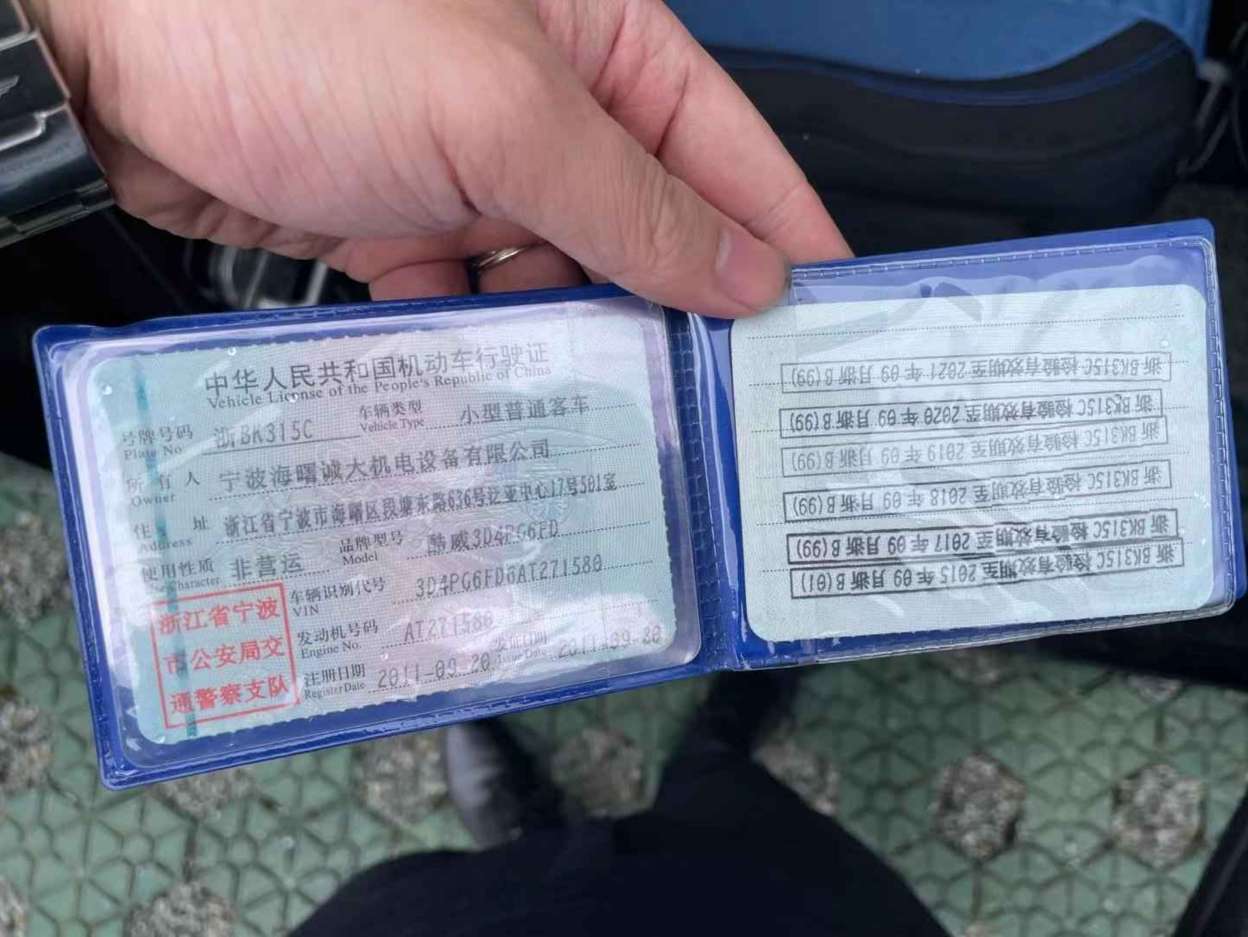 中华人民共和国机动车行驶证
Vehicle License of the People's Republic of China
号牌号码 浙BK315C 车辆类型 小型普通客车
Plate No Vehicle Type
所有人 宁波海曙诚大机电设备有限公司
Owner
住址 浙江省宁波市海曙区段塘东路636号泛亚中心17号501室
Address
使用性质 非营运 品牌型号 酷威3D4PG6FD
Use Character Model
车辆识别代号 3D4PG6FD6AT271580
VIN
发动机号码 AT271580
Engine No.
注册日期 2011-09-20 发证日期 2011-09-20
Register Date Issue Date
浙江省宁波
市公安局交
通警察支队
浙BK315C 检验有效期至2015年09月浙B(01)
浙BK315C 检验有效期至2017年09月浙B(99)
浙BK315C 检验有效期至2018年09月浙B(99)
浙BK315C 检验有效期至2019年09月浙B(99)
浙BK315C 检验有效期至2020年09月浙B(99)
浙BK315C 检验有效期至2021年09月浙B(99)